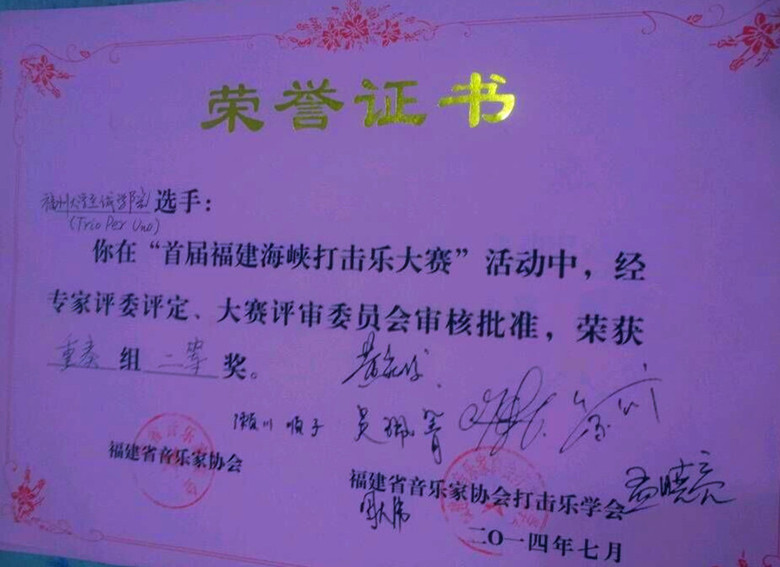 荣誉证书
福州大学至诚学院选手：
(Trio Per Uno)
你在“首届福建海峡打击乐大赛”活动中，经
专家评委评定、大赛评审委员会审核批准，荣获
重奏组二等奖。
濑川 顺子 吴珮菁
福建省音乐家协会
福建省音乐家协会打击乐学会 孟晓亮
二〇一四年七月